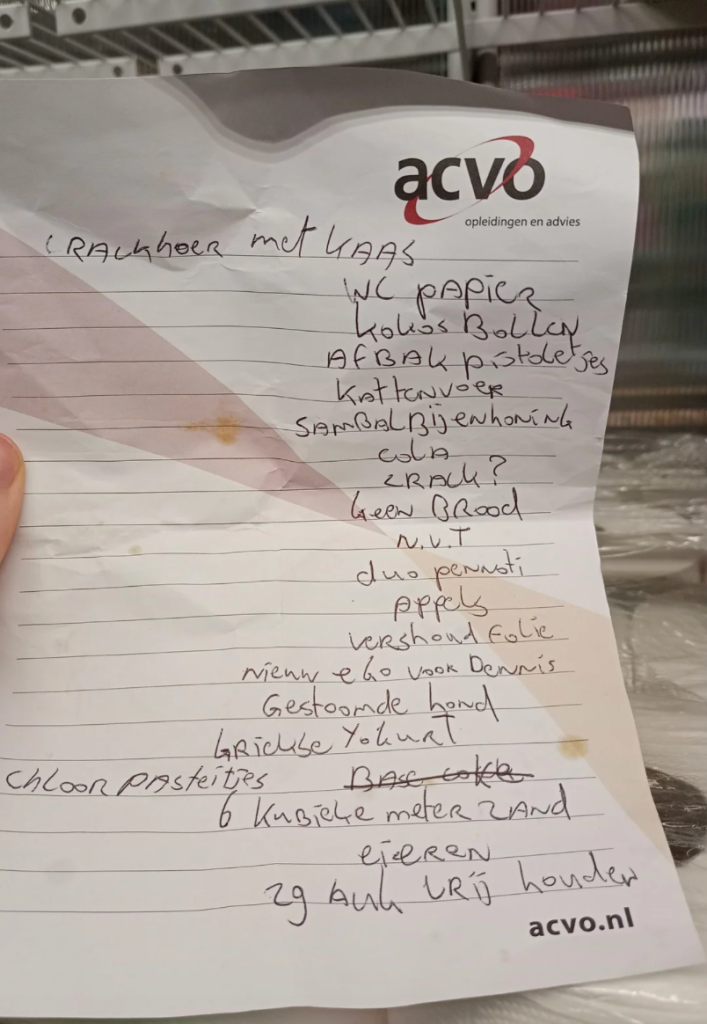 acvo
opleidingen en advies
CRACKhOER met KAAS
WC PAPIER
KOKOS BOLLEN
AFBAK pistoletjes
KATTENVOER
SAMBAL BijENhONiNG
COLA
CRACK?
GEEN BROOD
N.V.T
duo pennoti
APPels
VERShoud Folie
nieuw ego voor Dennis
Gestoomde hond
GRiekse YoguRT
ChLOOR PASteitjes BASE coke
6 KUBieke meter ZAND
eieren
29 Aug VRij houden
acvo.nl